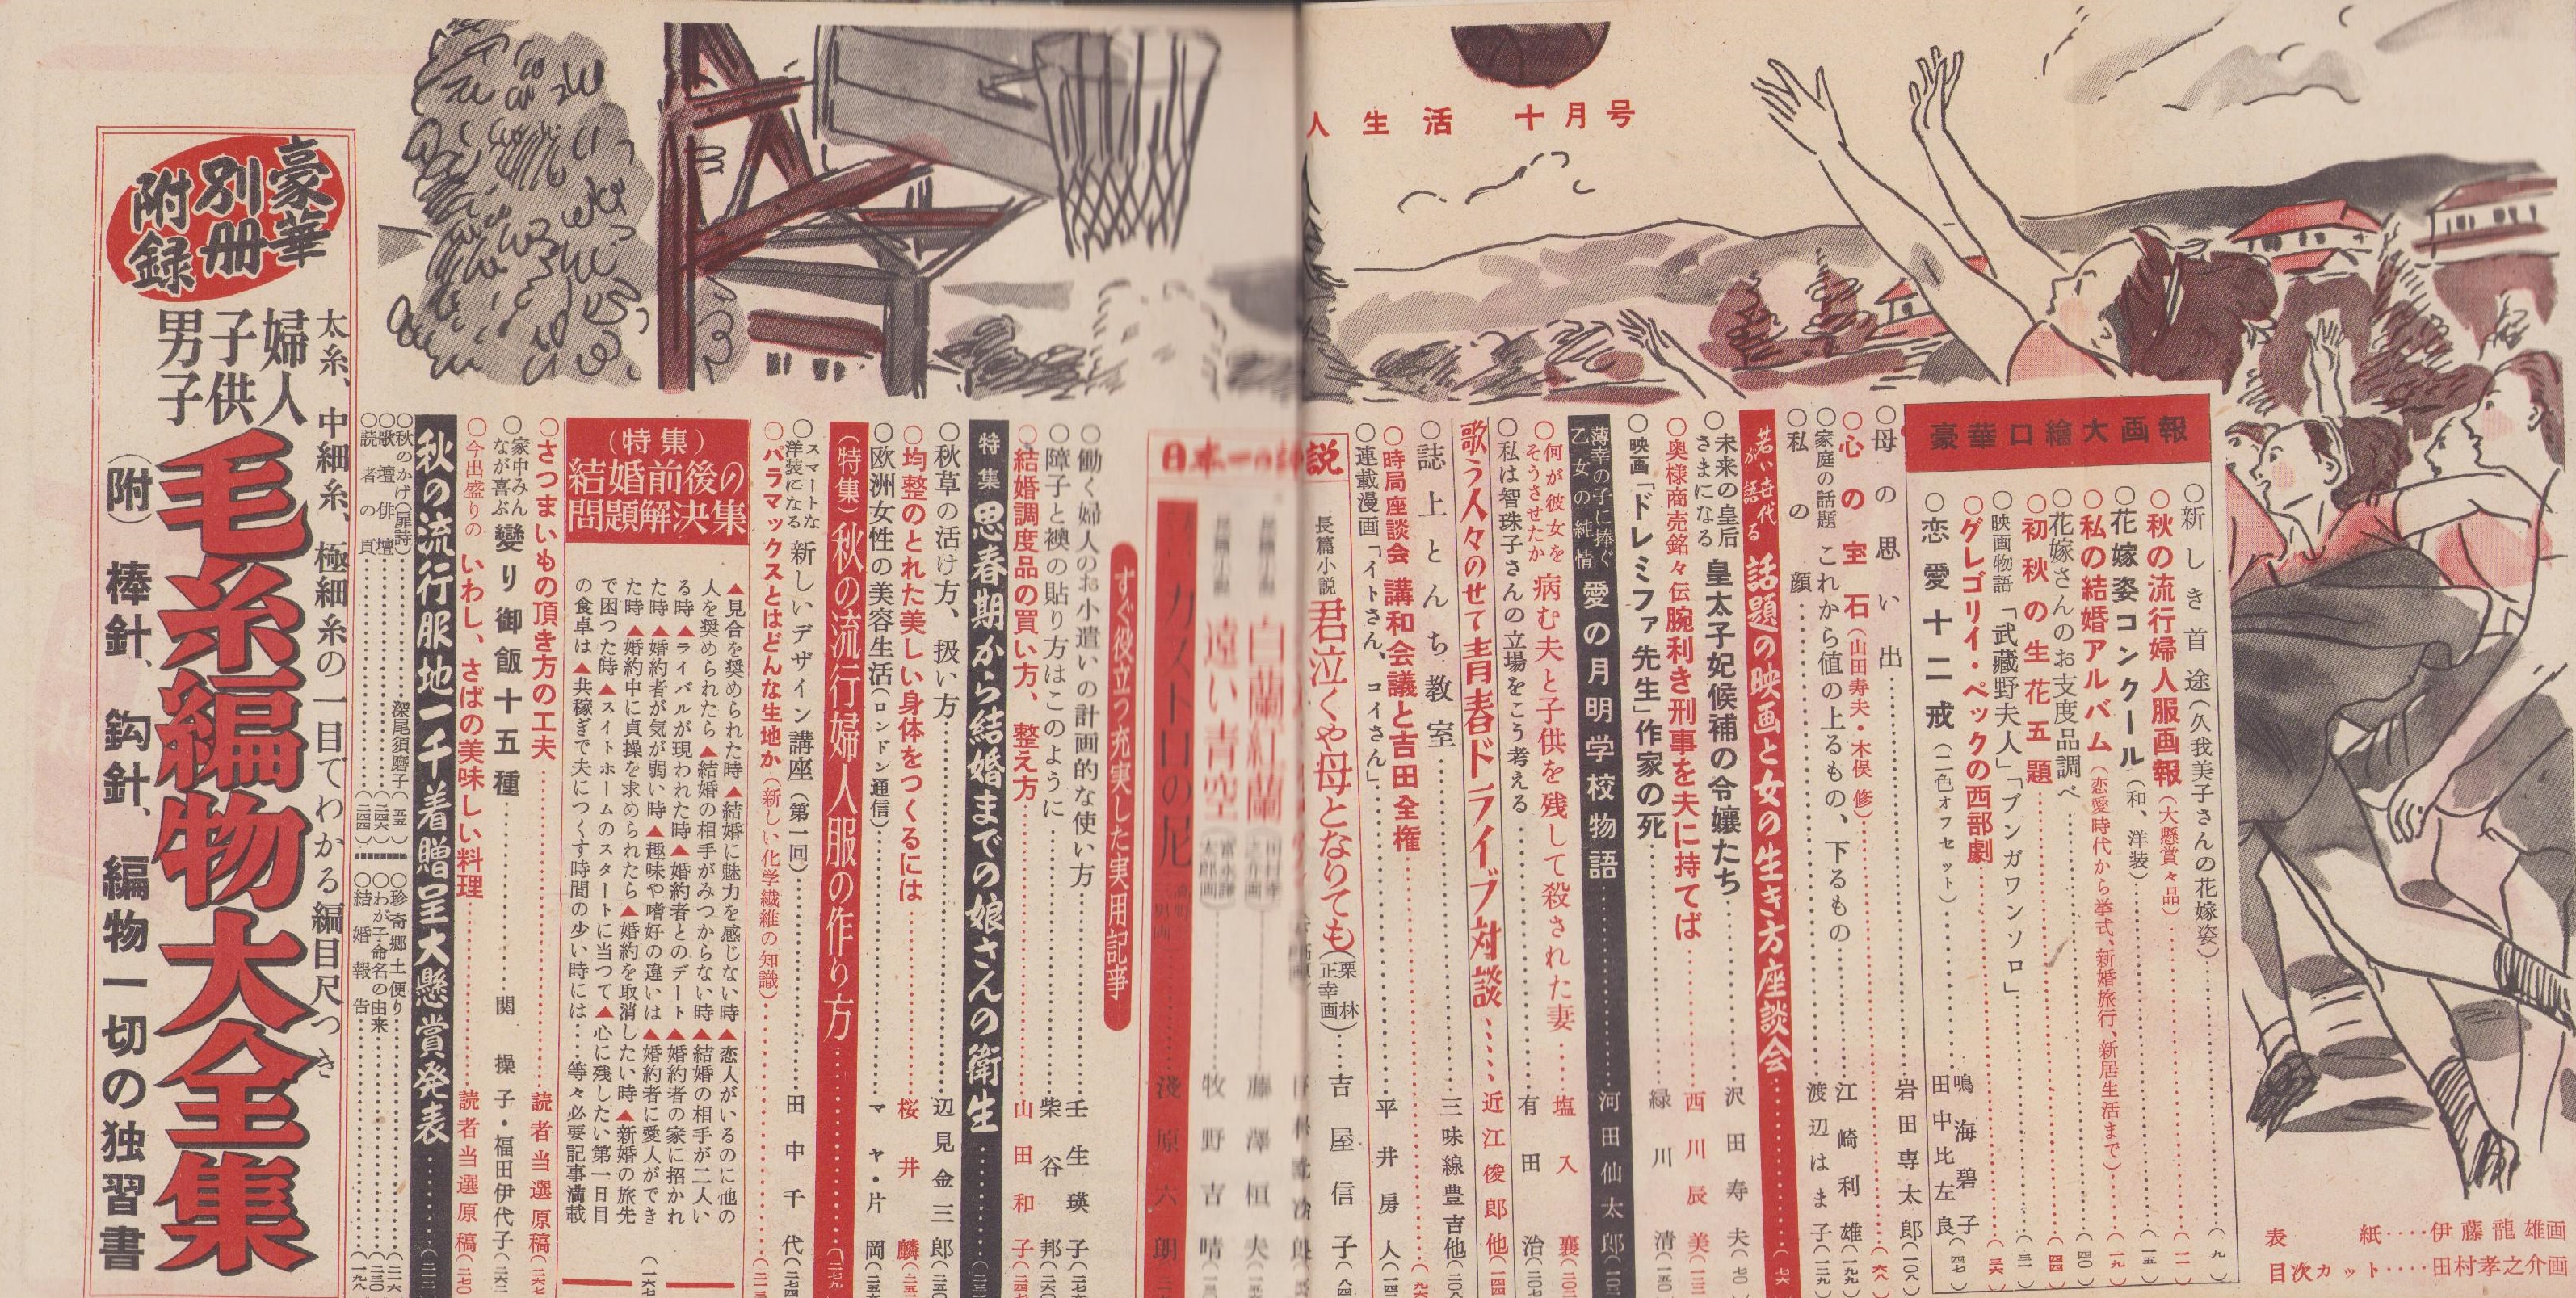 人生活 十月号
表紙‥‥伊藤龍雄画
目次カット‥‥田村孝之介画
豪華口繪大画報
○新しき首途(久我美子さんの花嫁姿)(九)
○秋の流行婦人服画報(大懸賞々品)(一一)
○花嫁姿コンクール(和、洋装)(一五)
○私の結婚アルバム(恋愛時代から挙式、新婚旅行、新居生活まで)(一九)
○花嫁さんのお支度品調べ(四〇)
○初秋の生花五題(四四)
○映画物語「武蔵野夫人」「ブンガワンソロ」(三一)
○グレゴリイ・ペックの西部劇(三六)
○恋愛十二戒(二色オフセット)鳴海碧子 田中比左良(四七)
○母の思い出 岩田専太郎(一〇八)
○心の宝石(山田寿夫・木俣修)(六八)
○家庭の話題 これから値の上るもの、下るもの 江崎利雄(一九九)
○私の顔 渡辺はま子(一二九)
若い世代が語る 話題の映画と女の生き方座談会(七六)
○未来の皇后さまになる 皇太子妃候補の令嬢たち 沢田寿夫(七〇)
○奥様商売銘々伝 腕利き刑事を夫に持てば 西川辰美(一三二)
○映画「ドレミファ先生」作家の死 緑川清(一五〇)
薄幸の子に捧ぐ乙女の純情 愛の月明学校物語 河田仙太郎(一〇三)
○何が彼女をそうさせたか 病む夫と子供を残して殺された妻 塩入襄(二〇二)
○私は智珠子さんの立場をこう考える 有田治(二〇七)
歌う人々のせて青春ドライブ対談 近江俊郎他(一四四)
○誌上とんち教室 三味線豊吉他(二〇八)
○時局座談会 講和会議と吉田全権
○連載漫画「イトさん、コイさん」 平井房人
長篇小説 君泣くや母となりても(栗林正幸画) 吉屋信子
白蘭紅蘭 藤澤桓夫
遠い青空 牧野吉晴
カストロの尼 淺原六朗
すぐ役立つ充実した実用記事
○働く婦人のお小遣いの計画的な使い方 壬生瑛子
○障子と襖の貼り方はこのように 柴谷邦(二六〇)
○結婚調度品の買い方、整え方 山田和子
特集 思春期から結婚までの娘さんの衛生
○秋草の活け方、扱い方 辺見金三郎(二五〇)
○均整のとれた美しい身体をつくるには 桜井麟
○欧洲女性の美容生活(ロンドン通信) マヤ・片岡
(特集)秋の流行婦人服の作り方(二七九)
○スマートな洋装になる 新しいデザイン講座(第一回) 田中千代
○パラマックスとはどんな生地か(新しい化学繊維の知識)
(特集)
結婚前後の
問題解決集
▲見合を奨められた時▲結婚に魅力を感じない時▲恋人がいるのに他の
人を奨められたら▲結婚の相手がみつからない時▲結婚の相手が二人い
る時▲ライバルが現われた時▲婚約者とのデート▲婚約者の家に招かれ
た時▲婚約者が気が弱い時▲趣味や嗜好の違いは▲婚約者に愛人ができ
た時▲婚約中に貞操を求められたら▲婚約を取消したい時▲新婚の旅先
で困つた時▲スイトホームのスタートに当つて▲心に残したい第一日目
の食卓は▲共稼ぎで夫につくす時間の少い時には‥‥等々必要記事満載
(一六七)
○さつまいもの頂き方の工夫 読者当選原稿(二六七)
○家中みんなが喜ぶ 變り御飯十五種 関操子・福田伊代子(二六二)
○今出盛りの いわし、さばの美味しい料理 読者当選原稿(二七〇)
秋の流行服地一千着贈呈大懸賞発表
○秋のかげ(扉詩) 深尾須磨子(五五)
○歌壇俳壇(二四六)
○読者の頁(二四四)
○珍奇郷土便り(二一六)
○わが子命名の由来(二三〇)
○結婚報告(一九八)
豪華
別冊
附録
太糸、中細糸、極細糸の一目でわかる編目尺つき
婦人
子供
男子
毛糸編物大全集
(附) 棒針、鈎針、編物一切の独習書